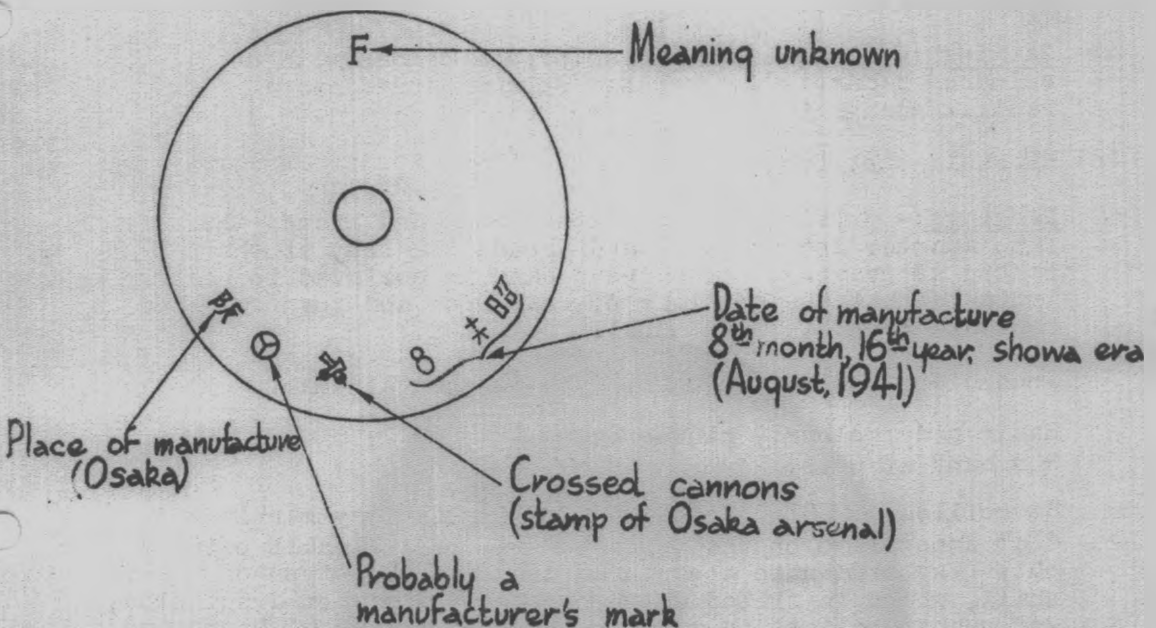 F
Meaning unknown
阪
8 六十 昭
Date of manufacture
8th month, 16th year, showa era
(August, 1941)
Place of manufacture
(Osaka)
Crossed cannons
(stamp of Osaka arsenal)
Probably a
manufacturer's mark